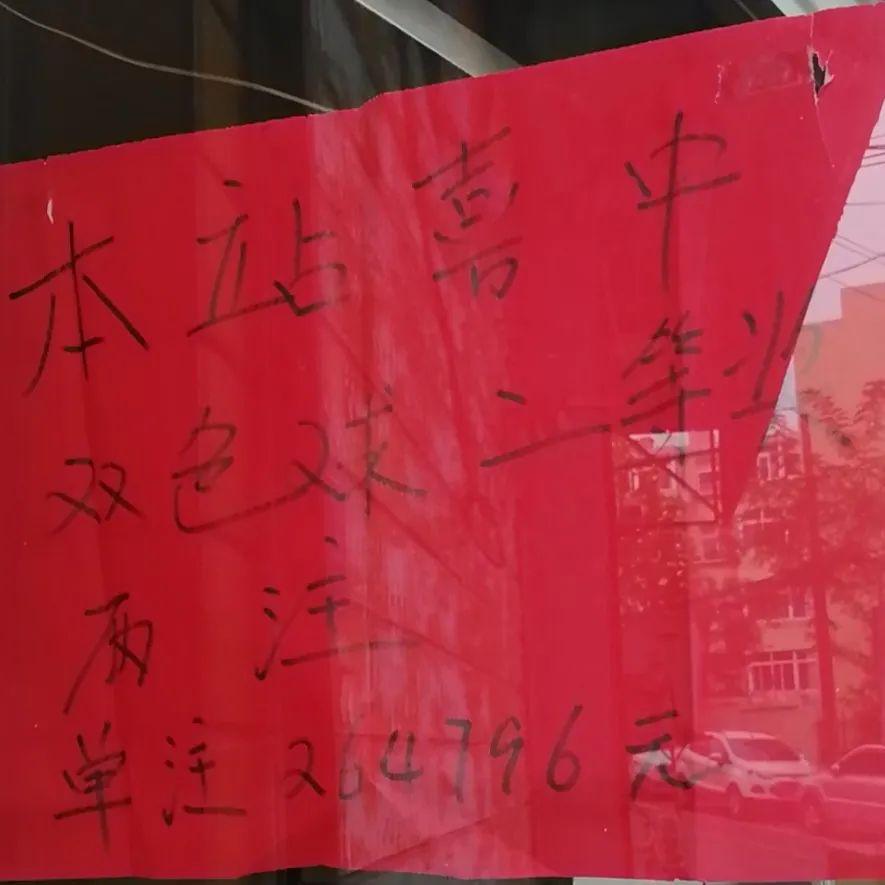 本站喜中
双色球二等奖
两注
单注264796元